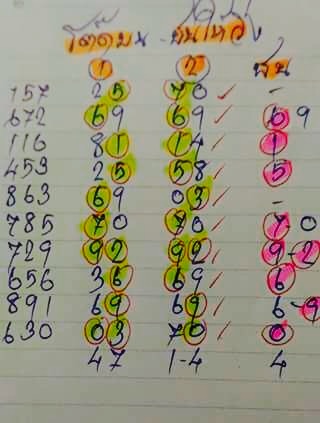 1 2 ชน
157 25 70 -
672 69 69 6 9
116 81 14 1
453 25 58 5
863 69 03 -
785 70 70 70
729 92 92 9-2
656 36 69 6
891 69 69 6-9
630 03 70 0
47 1-4 4